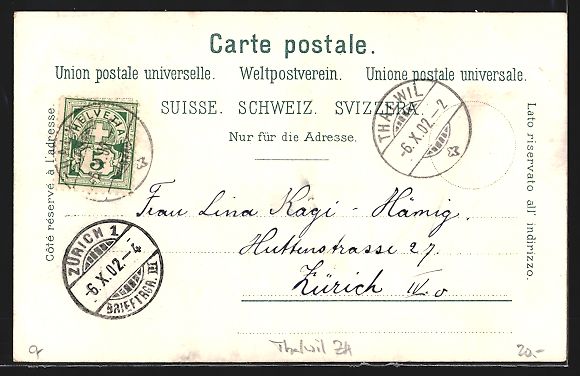 Carte postale.
Union postale universelle. Weltpostverein. Unione postale universale.
SUISSE. SCHWEIZ. SVIZZERA.
Nur für die Adresse.
Côté réservé à l'adresse.
Lato riservato all' indirizzo.
HELVETIA
5
THALWIL
-6.X.02-2
ZÜRICH 1
-6.X.02-4
BRIEFTRGR. III
Frau Lina Kägi-Hämig.
Huttenstrasse 27.
Zürich IV.
Thalwil ZH
20.-